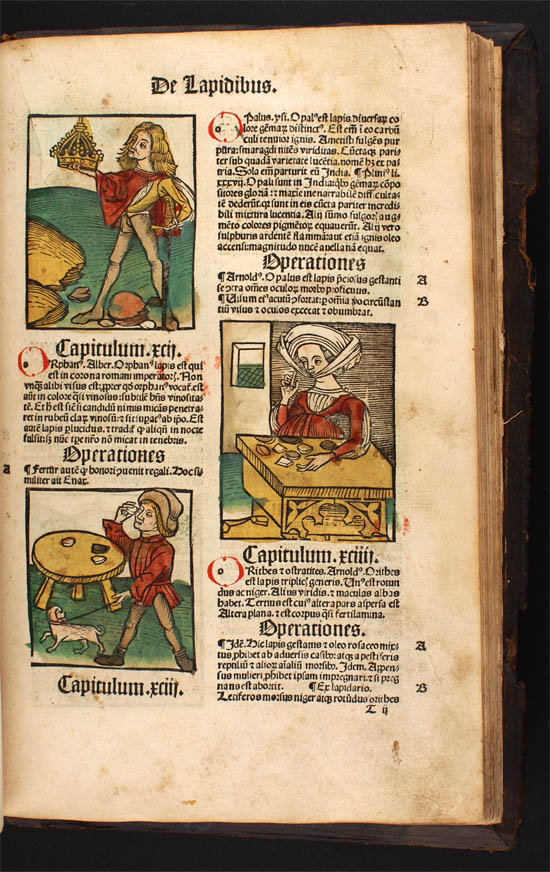 De Lapidibus.
Capitulum.xcij.
ORphanꝰ. Alber. Orphanꝰ lapis est qui
est in corona romani imperatoris. Non
vnqꝫ alibi visus est: propter qđ orphanꝰ vocat̃. est
aūt in colore q̃si vinosus: subtilē hñs vinosita
tē. Et hͦ est sicut si candidū nimis micās penetra
ret in rubeū claꝝ vinosū: ⁊ sit supat̃ ab ipo. Est
autē lapis plucidus. ⁊ tradit̃ ꝙ aliqñ in nocte
fulsit: sꝫ nūc tꝑe nr̃o nō micat in tenebris.
Operationes
A
¶ Fertur autē ꝙ honorē regali. Hoc si
militer ait Enax.
Capitulum.xciij.
OPalus. ysi. Opalꝰ est lapis diuersaꝝ co
lore gēmaꝝ distinctꝰ. Est em̄ ī eo carbū
culi tenuior ignis. Ametisti fulgēs pur
pura: smaragdi nitēs viriditas. Cūctaqꝫ pari
ter sub quadā varietate lucētia. nomē hꝫ ex pa
tria. Sola em̄ parturit eū India. ¶ Pliniꝰ li.
xxxvij. Opali sunt in India: ꝗbꝰ gēmaꝝ cōpo
sitores gloriā ⁊ maxīe inenarrabilē difficulta
tē dederūt. qꝛ sunt in eis cūcta pariter incredi
bili mixtura lucentia. Alij sūmo fulgori aug
mēto colores pigmētoꝝ equauerūt. Alij vero
sulphuris ardentē flāmā: aut etiā ignis oleo
accensi: magnitudo nucē auellanā equat.
Operationes
¶ Arnoldꝰ. Opalus est lapis p̄ciosus gestanti
se ꝯtra omēs oculoꝝ morbos proficuus.
A
¶ Visum eīꝰ acutū p̄stat: ꝓ omīa ꝟo circūstan
tiū visus ⁊ oculos excecat ⁊ obumbrat.
B
Capitulum.xciiij.
ORithes ⁊ ostratites. Arnoldꝰ. Orithes
est lapis triplicꝭ generis. Unꝰ est rotun
dus ac niger. Alius viridis. ⁊ maculas albas
habet. Tertius est cuiꝰ altera pars aspersa est
Altera plana. ⁊ est corpus q̃si fertilamina.
Operationes.
¶ Idē. Hic lapis gestatus ⁊ oleo rosaceo mix
tus, ꝓhibet ab aduersis casibꝰ: atqꝫ a pestiferis
A
reptiliū ⁊ alioꝝ aīaliū morsibꝰ. Idem. Appen
sus mulieri, ꝓhibet ipsam impregnari. ⁊ si preg
nans est abortit. ¶ Ex lapidario.
B
Leciferos morsus niger atqꝫ rotūdus orithes
T ij